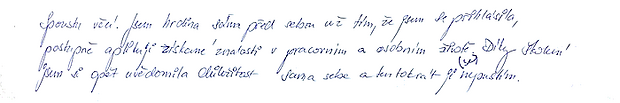 Spoustu věcí. Jsem hrdina sama před sebou už tím, že jsem se přihlásila,
postupně aplikuji získané znalosti v pracovním a osobním životě. Díky školení
jsem si opět uvědomila důležitost sama sebe a tentokrát ji (už) nepustím.